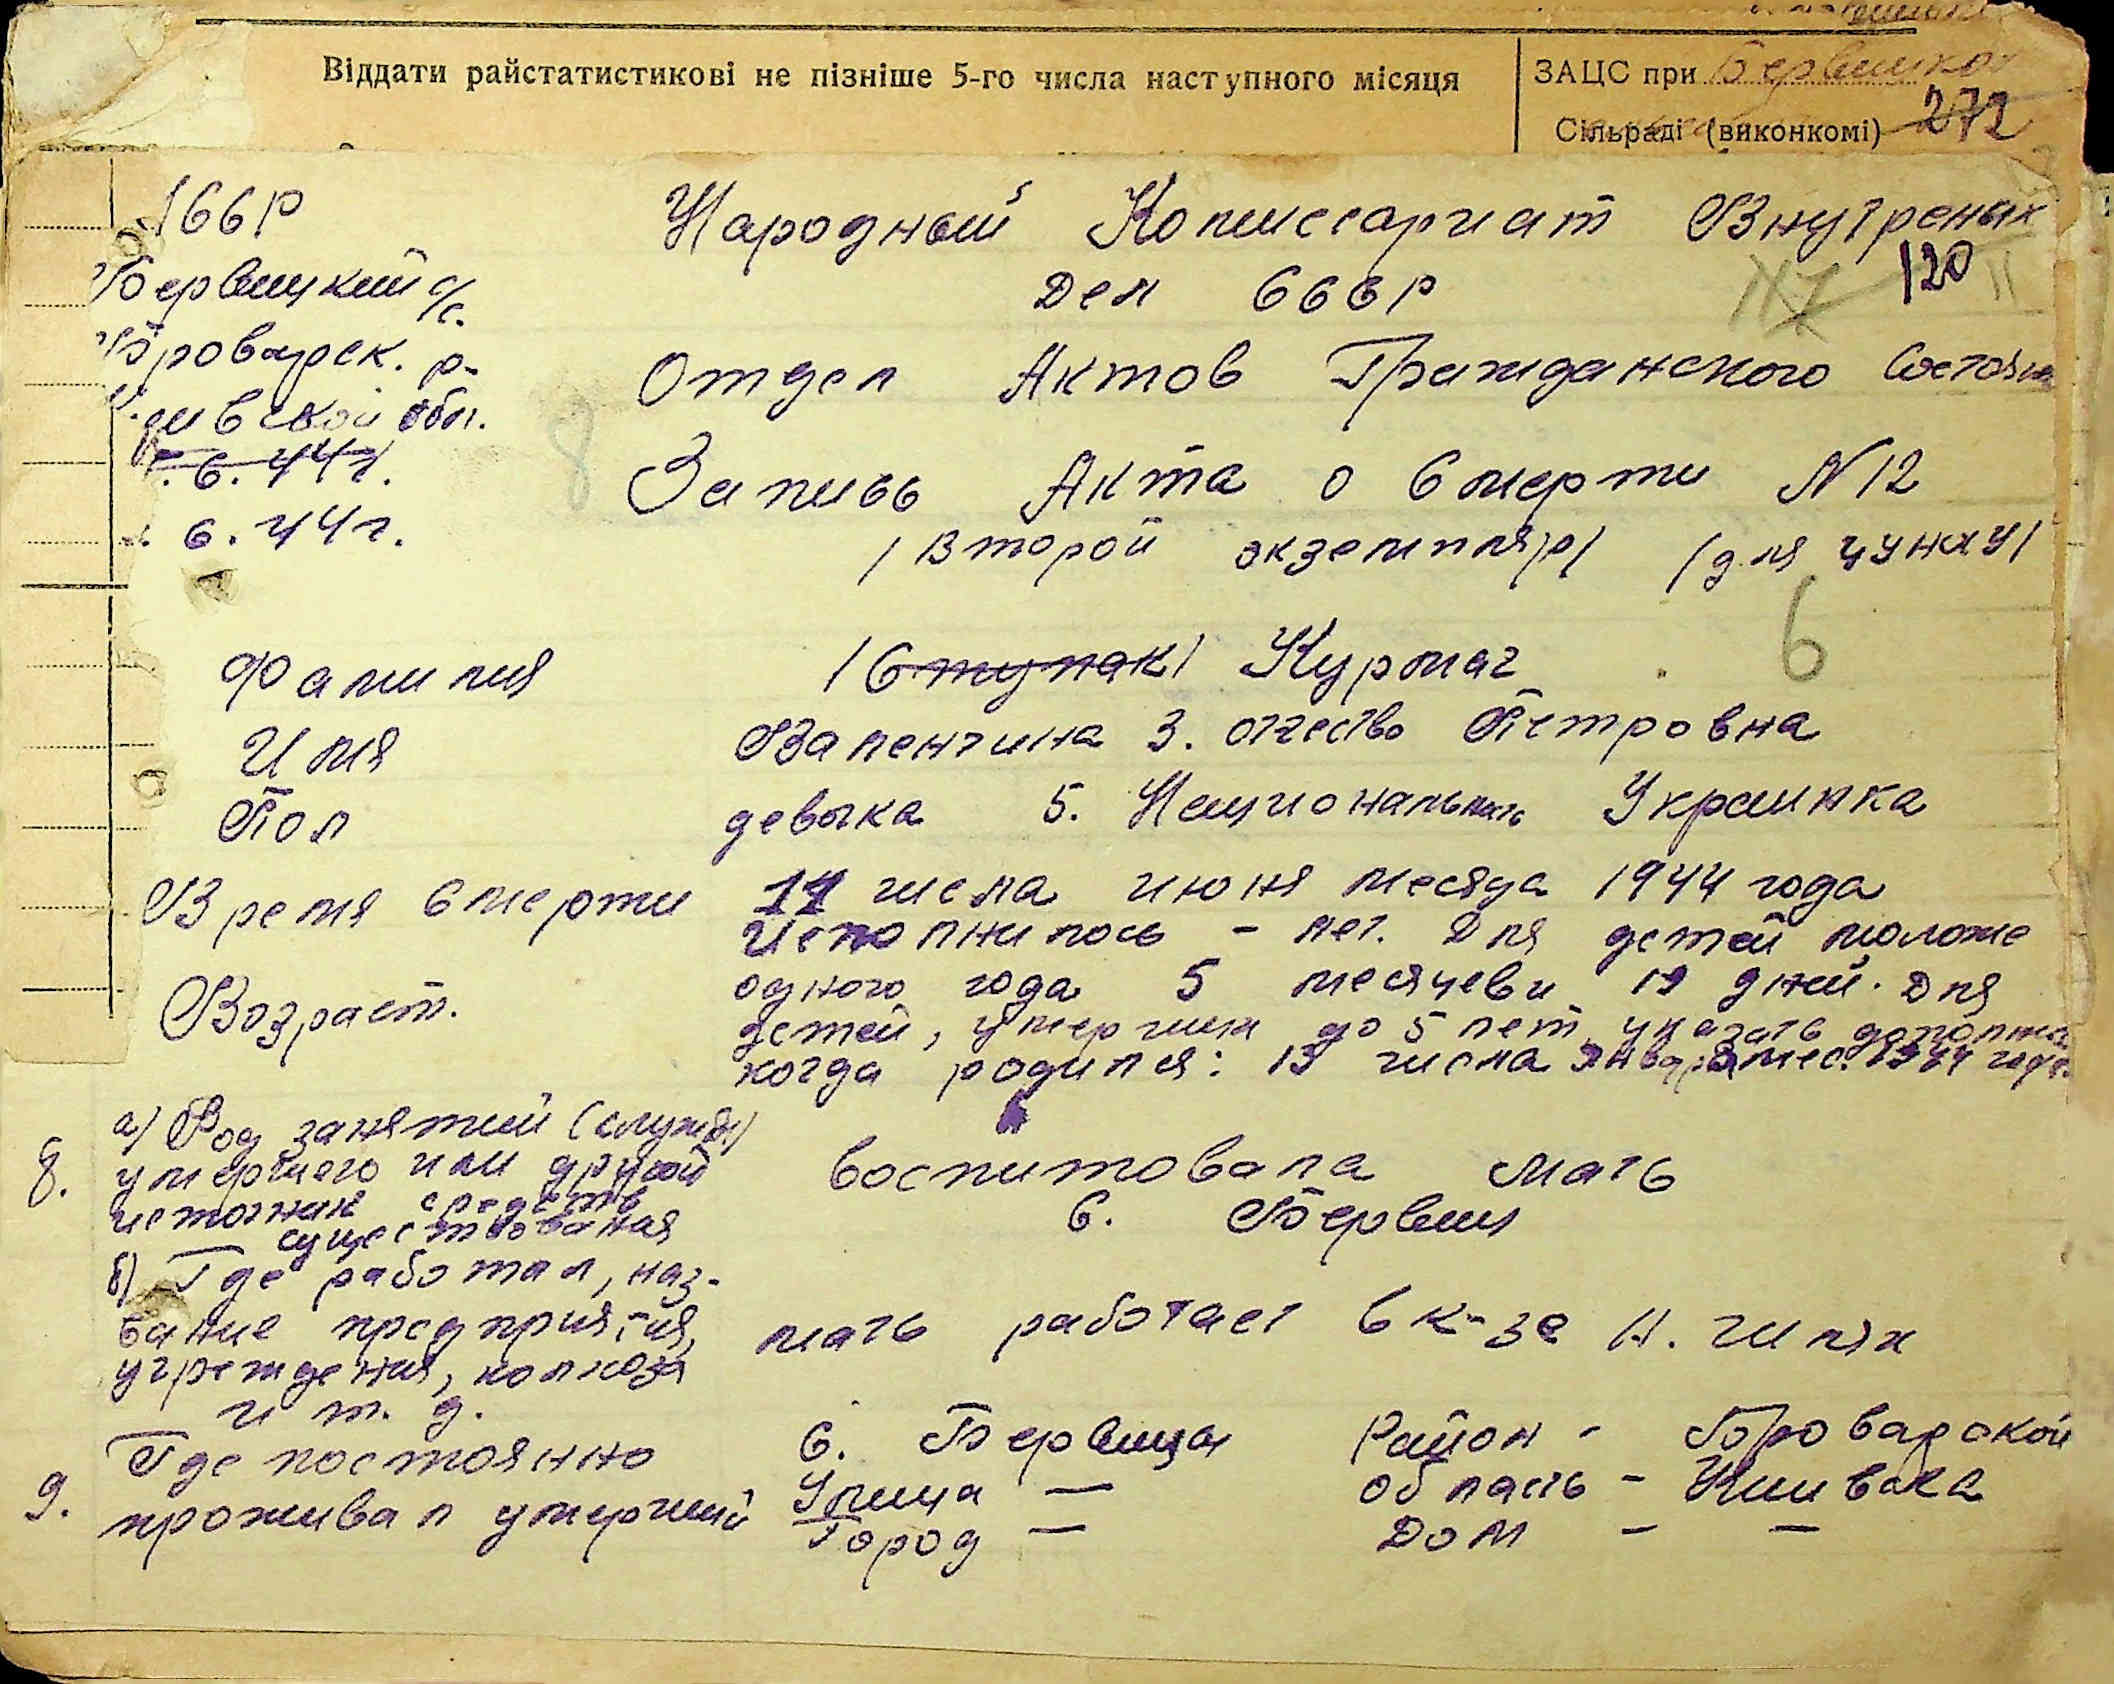 Віддати райстатистикові не пізніше 5-го числа наступного місяця
ЗАЦС при Бервицкой
Сільраді (виконкомі)
272
УССР
Народный Комиссариат Внутреных
Бервицкий с/с.
Дел СССР
120
Броварск. р-
Отдел Актов Гражданского Состоян
Киевской обл.
6. 44г.
Запись Акта о Смерти N 12
6. 44г.
/Второй экземпляр/ /для цунху/
6
Фамилия /Ступак/ Курмаг
Имя Валентина 3. отчество Петровна
Пол девочка 5. Национальность Украинка
Время Смерти 11 числа июня месяца 1944 года
Исполнилось - лет. Для детей моложе
Возраст. одного года 5 месяцев и 19 дней. Для
детей, умерших до 5 лет, указать дополнит.
когда родился: 13 числа Января мес. 1944 года
8. а) Род занятий (службы)
умершего или другой
источник средств
существования
воспитовала мать
с. Бервиц
б) Где работал, наз-
вание предприятия,
учреждения, колхоза
и т. д.
мать работает в к-зе
9. Где постоянно
проживал умерший
с. Бервица Район - Броварской
Улица — Область - Киивска
Город — Дом - —